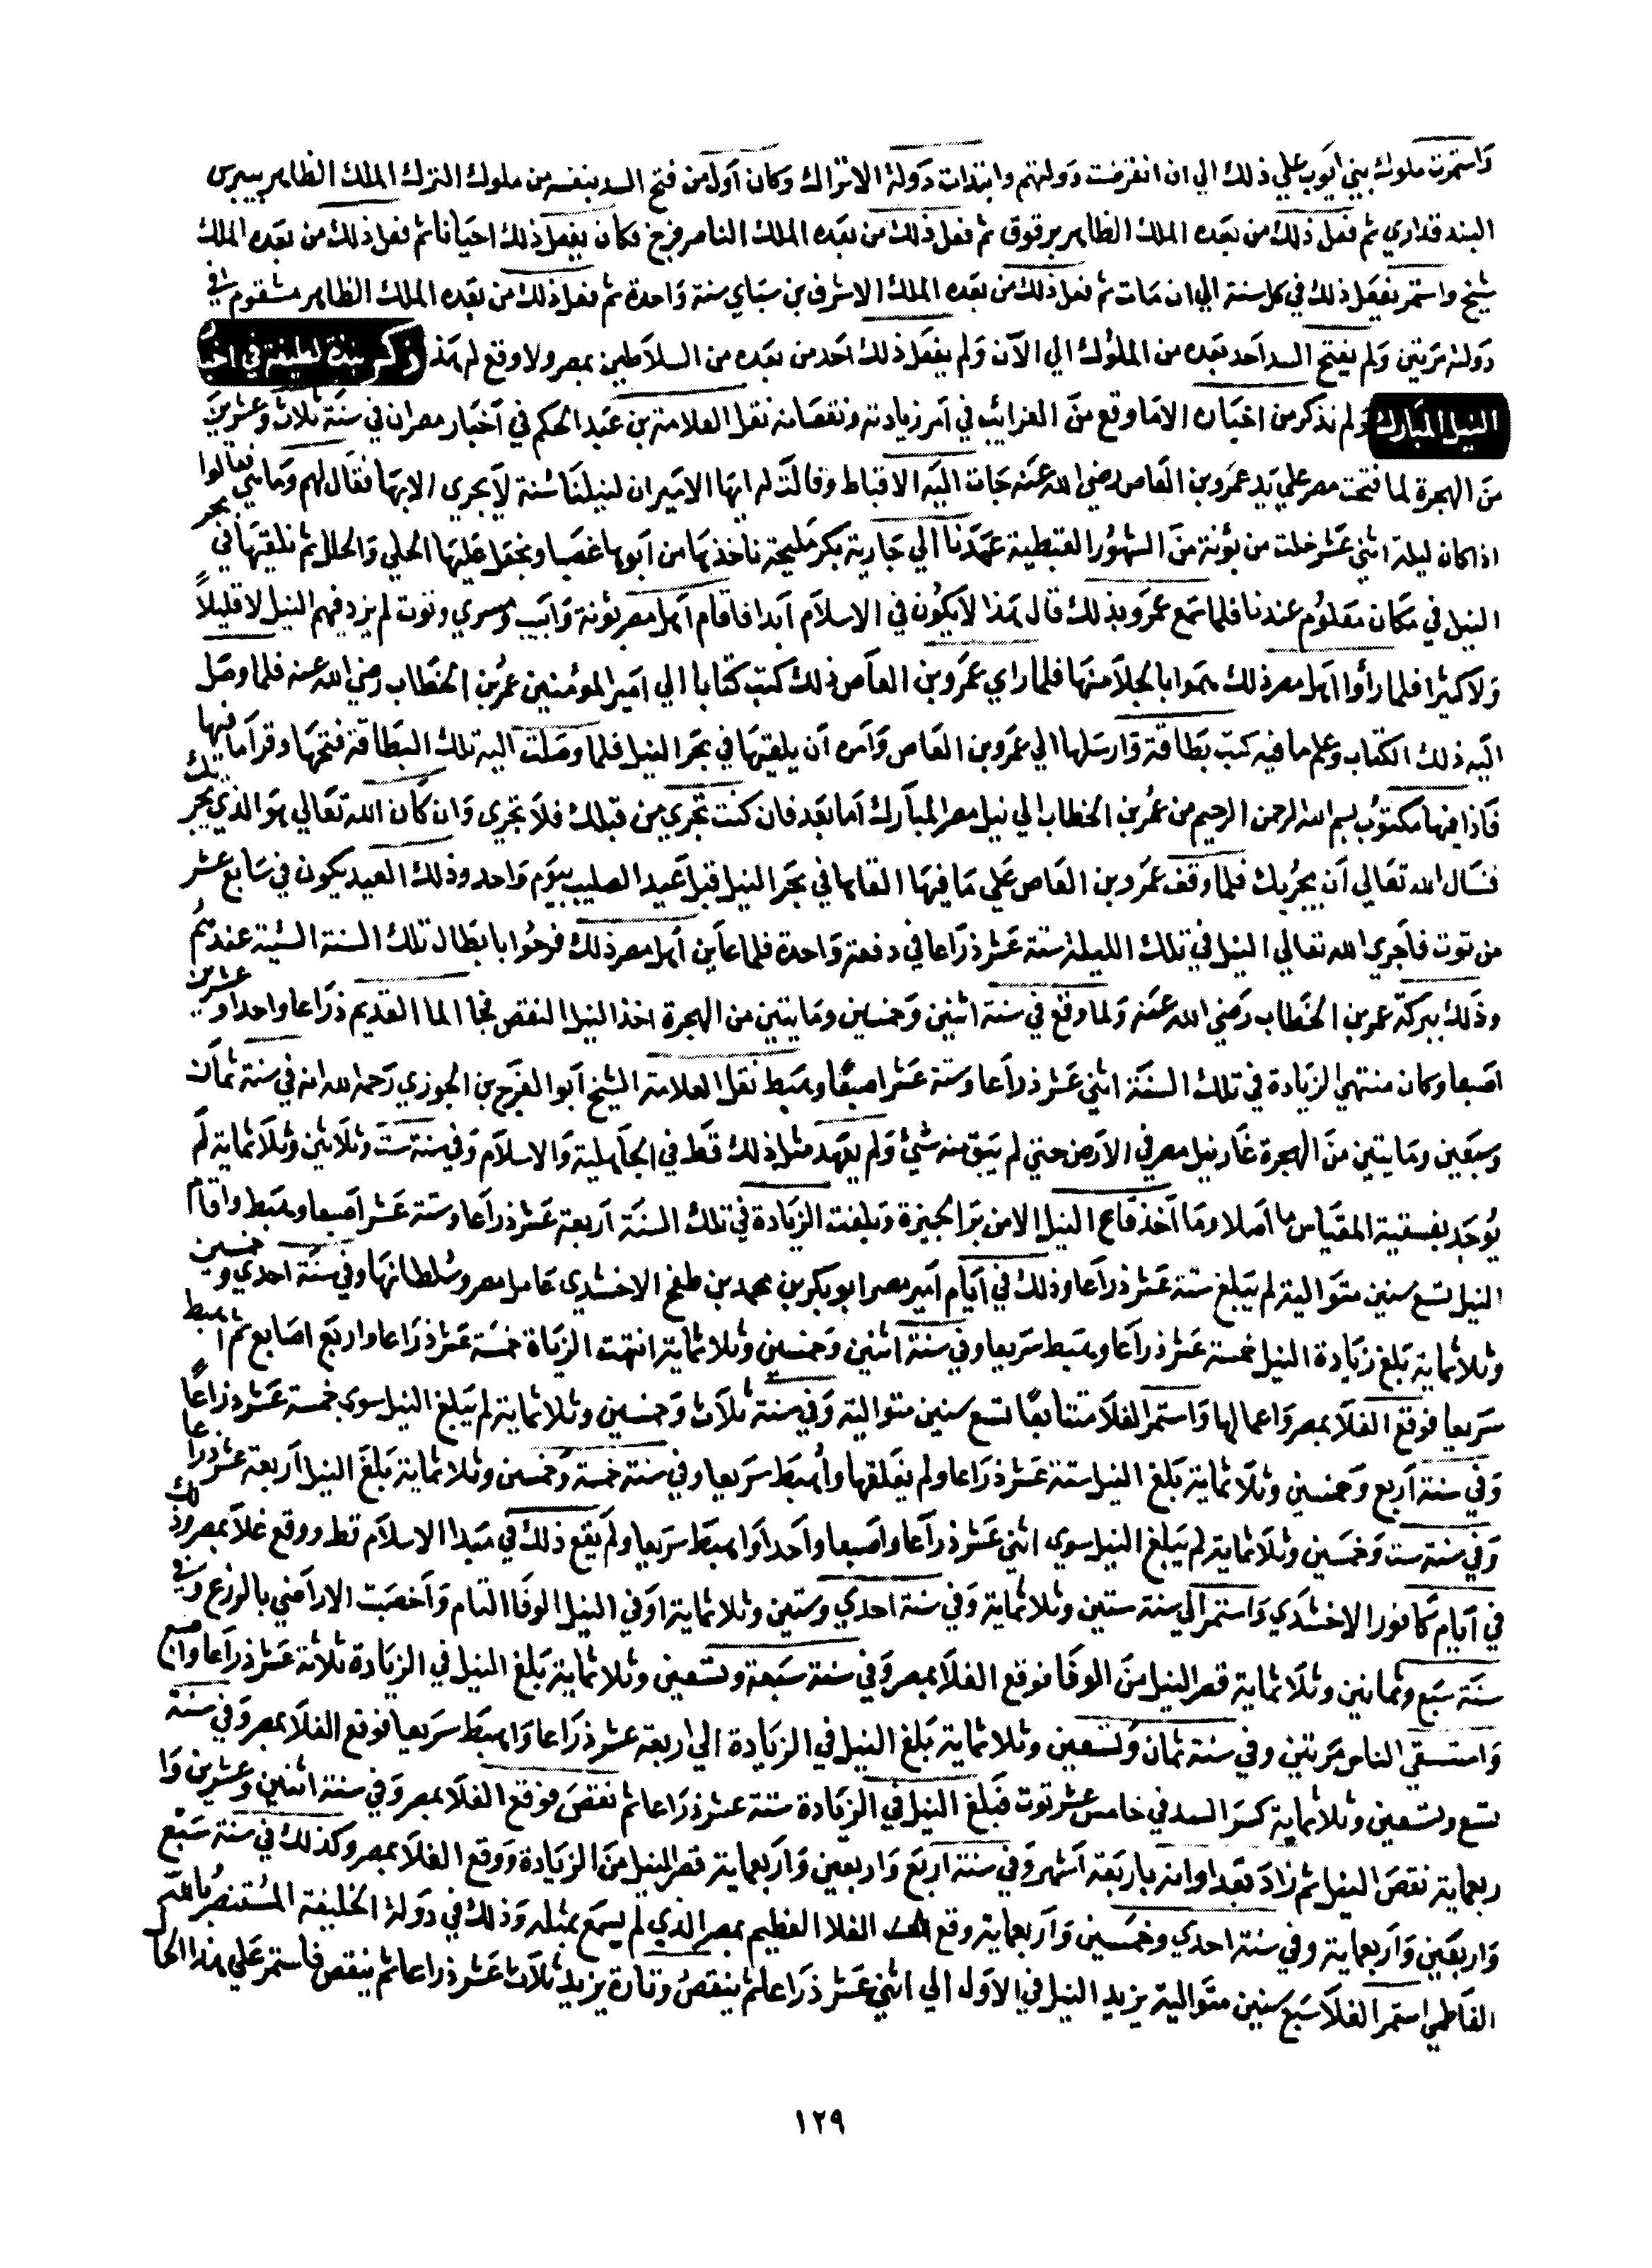 واستمرت ملوك بني ايوب علي ذلك الي ان انقرضت دولتهم وابتدات دولة الاتراك وكان اول من فتح السد بنفسه من ملوك الترك الملك الظاهر بيبرس
البندقداري ثم فعل ذلك من بعده الملك الظاهر برقوق ثم فعل ذلك من بعده الملك الناصر فرج فكان يفعل ذلك احيانا ثم فعل ذلك من بعده الملك
شيخ واستمر يفعل ذلك في كل سنة الي ان مات ثم فعل ذلك من بعده الملك الاشرف بن سباي سنة واحدة ثم فعل ذلك من بعده الملك الظاهر مشقوم في
دولته مرتين ولم يفتح السد احد بعده من الملوك الي الآن ولم يفعل ذلك احد من بعده من السلاطين بمصر ولا وقع لهم هذا ذكر نبذة لطيفة في اخبار
النيل المبارك ولم نذكر من اخباره الا ما وقع من الغرايب في امر زيادته ونقصانه نقل العلامة بن عبد الحكم في اخبار مصر ان في سنة ثلاث وعشرين
من الهجرة لما فتحت مصر علي يد عمرو بن العاص رضي الله عنه جات اليه الاقباط وقالت له ايها الامير ان لنيلنا سنة لا يجري الا بها فقال لهم وما هي فقالوا
اذا كان ليلة اثني عشر خلت من بؤنة من الشهور القبطية عهدنا الي جارية بكر مليحة ناخذها من ابوها غصبا ونجعل عليها الحلي والحلل ثم نلقيها في بحر
النيل في مكان معلوم عندنا فلما سمع عمرو بذلك قال هذا لا يكون في الاسلام ابدا فاقام اهل مصر بؤنة وابيب ومسري وتوت لم يزد فيهم النيل لا قليلاً
ولا كثيرا فلما رأوا اهل مصر ذلك هموا بالجلا منها فلما راي عمرو بن العاص ذلك كتب كتابا الي امير المؤمنين عمر بن الخطاب رضي الله عنه فلما وصل
اليه ذلك الكتاب وعلم ما فيه كتب بطاقة وارسلها الي عمرو بن العاص وامره ان يلقيها في بحر النيل فلما وصلت اليه تلك البطاقة فتحها وقرا ما فيها
فاذا فيها مكتوب بسم الله الرحمن الرحيم من عمر بن الخطاب الي نيل مصر المبارك اما بعد فان كنت تجري من قبلك فلا تجري وان كان الله تعالي هو الذي يجريك
فنسال الله تعالي ان يجريك فلما وقف عمرو بن العاص علي ما فيها القاها في بحر النيل قبل عيد الصليب بيوم واحد وذلك العيد يكون في سابع عشر
من توت فاجري الله تعالي النيل في تلك الليلة ستة عشر ذراعا في دفعة واحدة فلما عاين اهل مصر ذلك فرحوا بابطال تلك السنة السيئة عندهم
وذلك ببركة عمر بن الخطاب رضي الله عنه ولما وقع في سنة اثنين وخمسين ومايتين من الهجرة اخذ النيل النقص فجا الما القديم ذراعا واحدا وعشرين
اصبعا وكان منتهي الزيادة في تلك السنة اثني عشر ذراعا وستة عشر اصبعًا وهبط نقل العلامة الشيخ ابو الفرج بن الجوزي رحمه الله انه في سنة ثمان
وسبعين ومايتين من الهجرة غار نيل مصر في الارض حتي لم يبق منه شيئ ولم يعهد مثل ذلك قط في الجاهلية والاسلام وفي سنة ست وثلاثين وثلاثماية لم
يوجد بفسقية المقياس ما اصلا وما اخذ قاع النيل الا من بر الجيزة وبلغت الزيادة في تلك السنة اربعة عشر ذراعا وستة عشر اصبعا وهبط واقام
النيل تسع سنين متوالية لم يبلغ ستة عشر ذراعا وذلك في ايام امير مصر ابو بكر بن محمد بن طغج الاخشدي عامل مصر وسلطانها وفي سنة احدي وخمسين
وثلاثماية بلغ زيادة النيل خمسة عشر ذراعا وهبط سريعا وفي سنة اثنين وخمسين وثلاثماية انتهت الزياة خمسة عشر ذراعا واربع اصابع ثم اهبط
سريعا فوقع الغلا بمصر واعمالها واستمر الغلا متتابعًا تسع سنين متوالية وفي سنة ثلاث وخمسين وثلاثماية لم يبلغ النيل سوي خمسة عشر ذراعًا
وفي سنة اربع وخمسين وثلاثماية بلغ النيل ستة عشر ذراعا ولم يغلقها وأهبط سريعا وفي سنة خمسة وخمسين وثلاثماية بلغ النيل اربعة عشر ذراعا
وفي سنة ست وخمسين وثلاثماية لم يبلغ النيل سوي اثني عشر ذراعا واصبعا واحدا واهبط سريعا ولم يقع ذلك في مبدا الاسلام قط ووقع غلا بمصر وذلك
في ايام كافور الاخشدي واستمر الي سنة ستين وثلاثماية وفي سنة احدي وستين وثلاثماية اوفي النيل الوفا التام واخصبت الاراضي بالزرع وفي
سنة سبع وثمانين وثلاثماية قصر النيل من الوفا فوقع الغلا بمصر وفي سنة سبعة وتسعين وثلاثماية بلغ النيل في الزيادة ثلاثة عشر ذراعا واصبع
واستسقي الناس مرتين وفي سنة ثمان وتسعين وثلاثماية بلغ النيل في الزيادة الي اربعة عشر ذراعا واهبط سريعا فوقع الغلا بمصر وفي سنة
تسع وتسعين وثلاثماية كسر السد في خامس عشر توت فبلغ النيل في الزيادة ستة عشر ذراعا ثم نقص فوقع الغلا بمصر وفي سنة اثنين وعشرين وا
ربعماية نقص النيل ثم زاد بعد اوانه باربعة اشهر وفي سنة اربع واربعين واربعماية قصر النيل من الزيادة ووقع الغلا بمصر وكذلك في سنة سبع
واربعين واربعماية وفي سنة احدي وخمسين واربعماية وقع الغلا العظيم بمصر الذي لم يسمع بمثله وذلك في دولة الخليفة المستنصر بالله
الفاطمي استمر الغلا سبع سنين متوالية يزيد النيل في الاول الي اثني عشر ذراعا ثم ينقص وتارة يزيد ثلاث عشر ذراعا ثم ينقص فاستمر علي هذا الحال
١٢٩